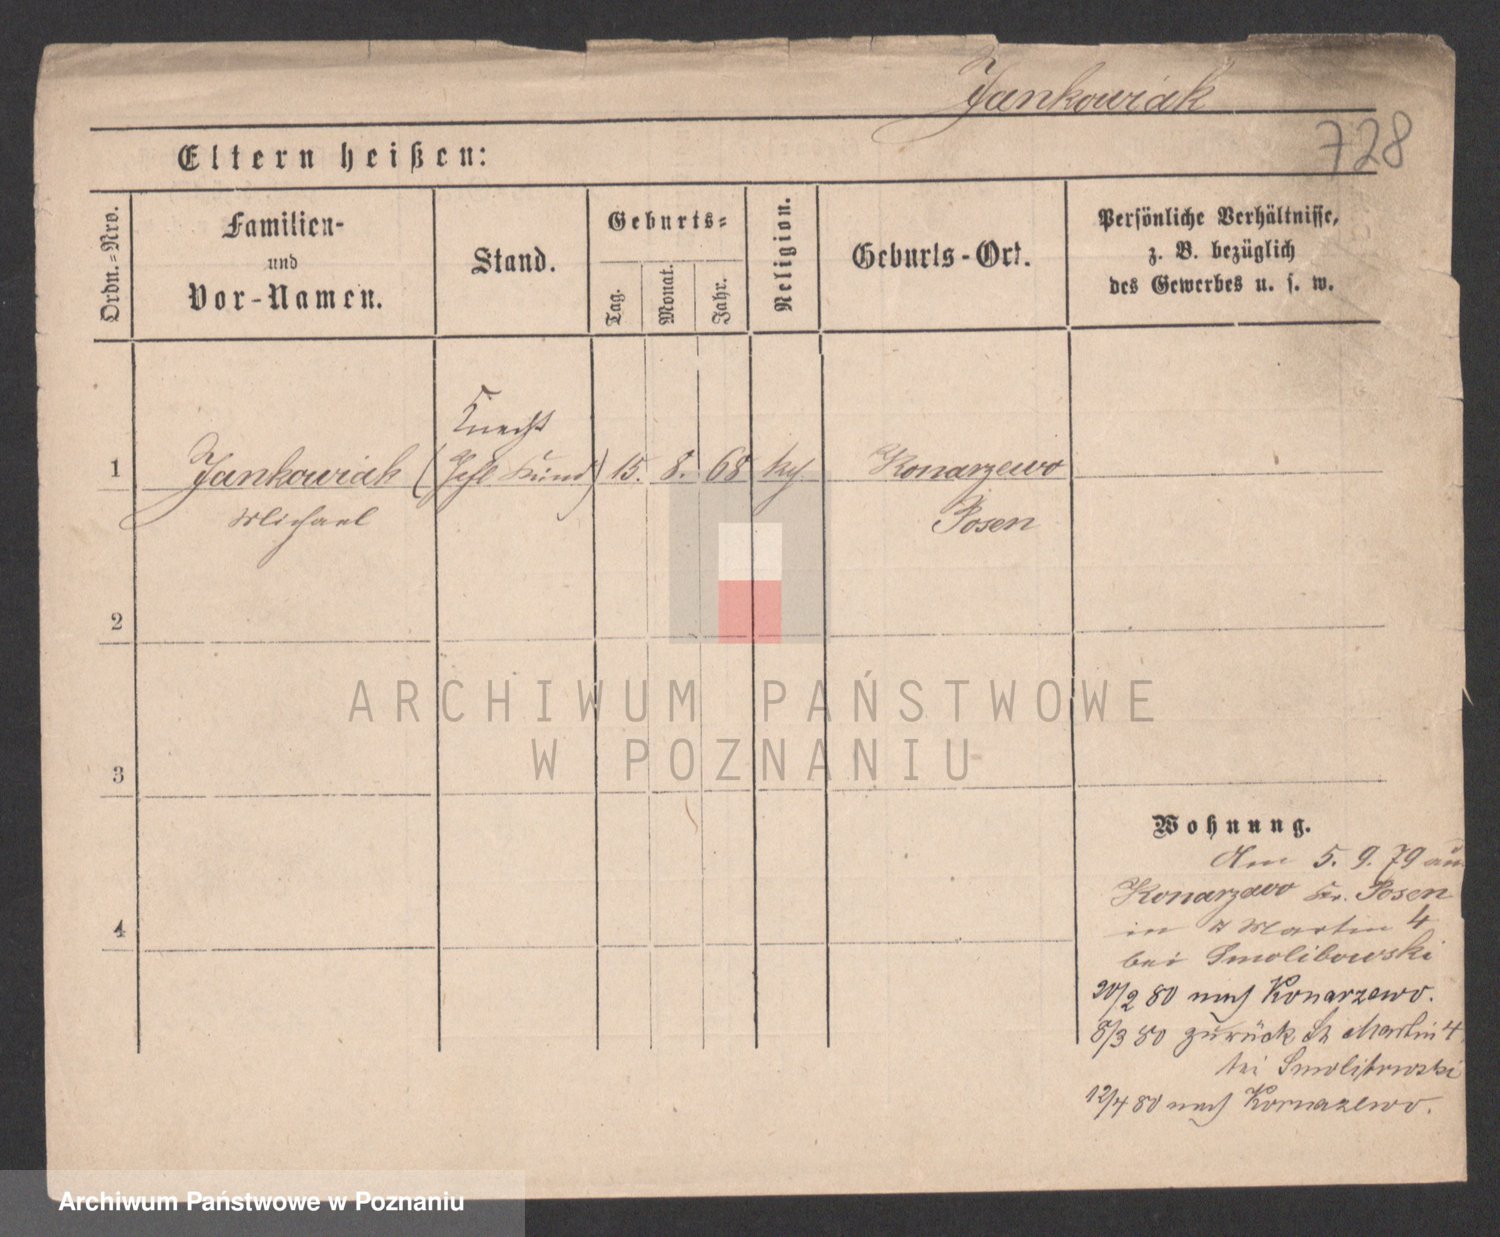 Jankowiak
728
Eltern heißen:
Ordn.=Nro.
Familien-
und
Vor-Namen.
Stand.
Geburts=
Tag.
Monat.
Jahr.
Religion.
Geburts-Ort.
Persönliche Verhältnisse,
z. B. bezüglich
des Gewerbes u. s. w.
Knecht
1 Jankowiak 15. 8. 68 kth Konarzewo
Michael Posen
2
ARCHIWUM PAŃSTWOWE
W POZNANIU
3
4
Wohnung.
Am 5. 9. 79 aus
Konarzewo Kr. Posen
in St Martin 4
bei Smolibowski
20/2 80 nach Konarzewo.
8/3 80 zurück St Martin 4
bei Smolibowski
12/4 80 nach Kornazewo.
Archiwum Państwowe w Poznaniu